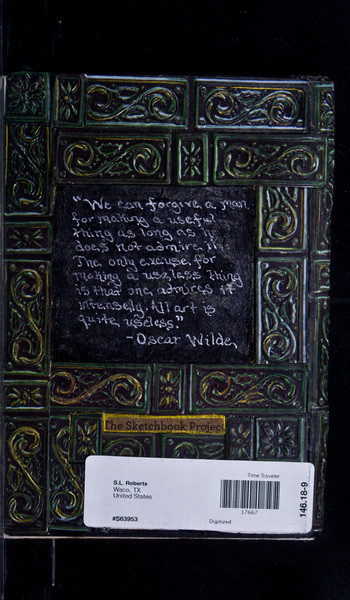 "We can forgive a man
for making a useful
thing as long as he
does not admire it.
The only excuse for
making a useless thing
is that one admires it
intensely. All art is
quite useless."
- Oscar Wilde
The Sketchbook Project
Time Traveler
S.L. Roberts
Waco, TX
United States
17667
#S63953
Digitized
146.18-9